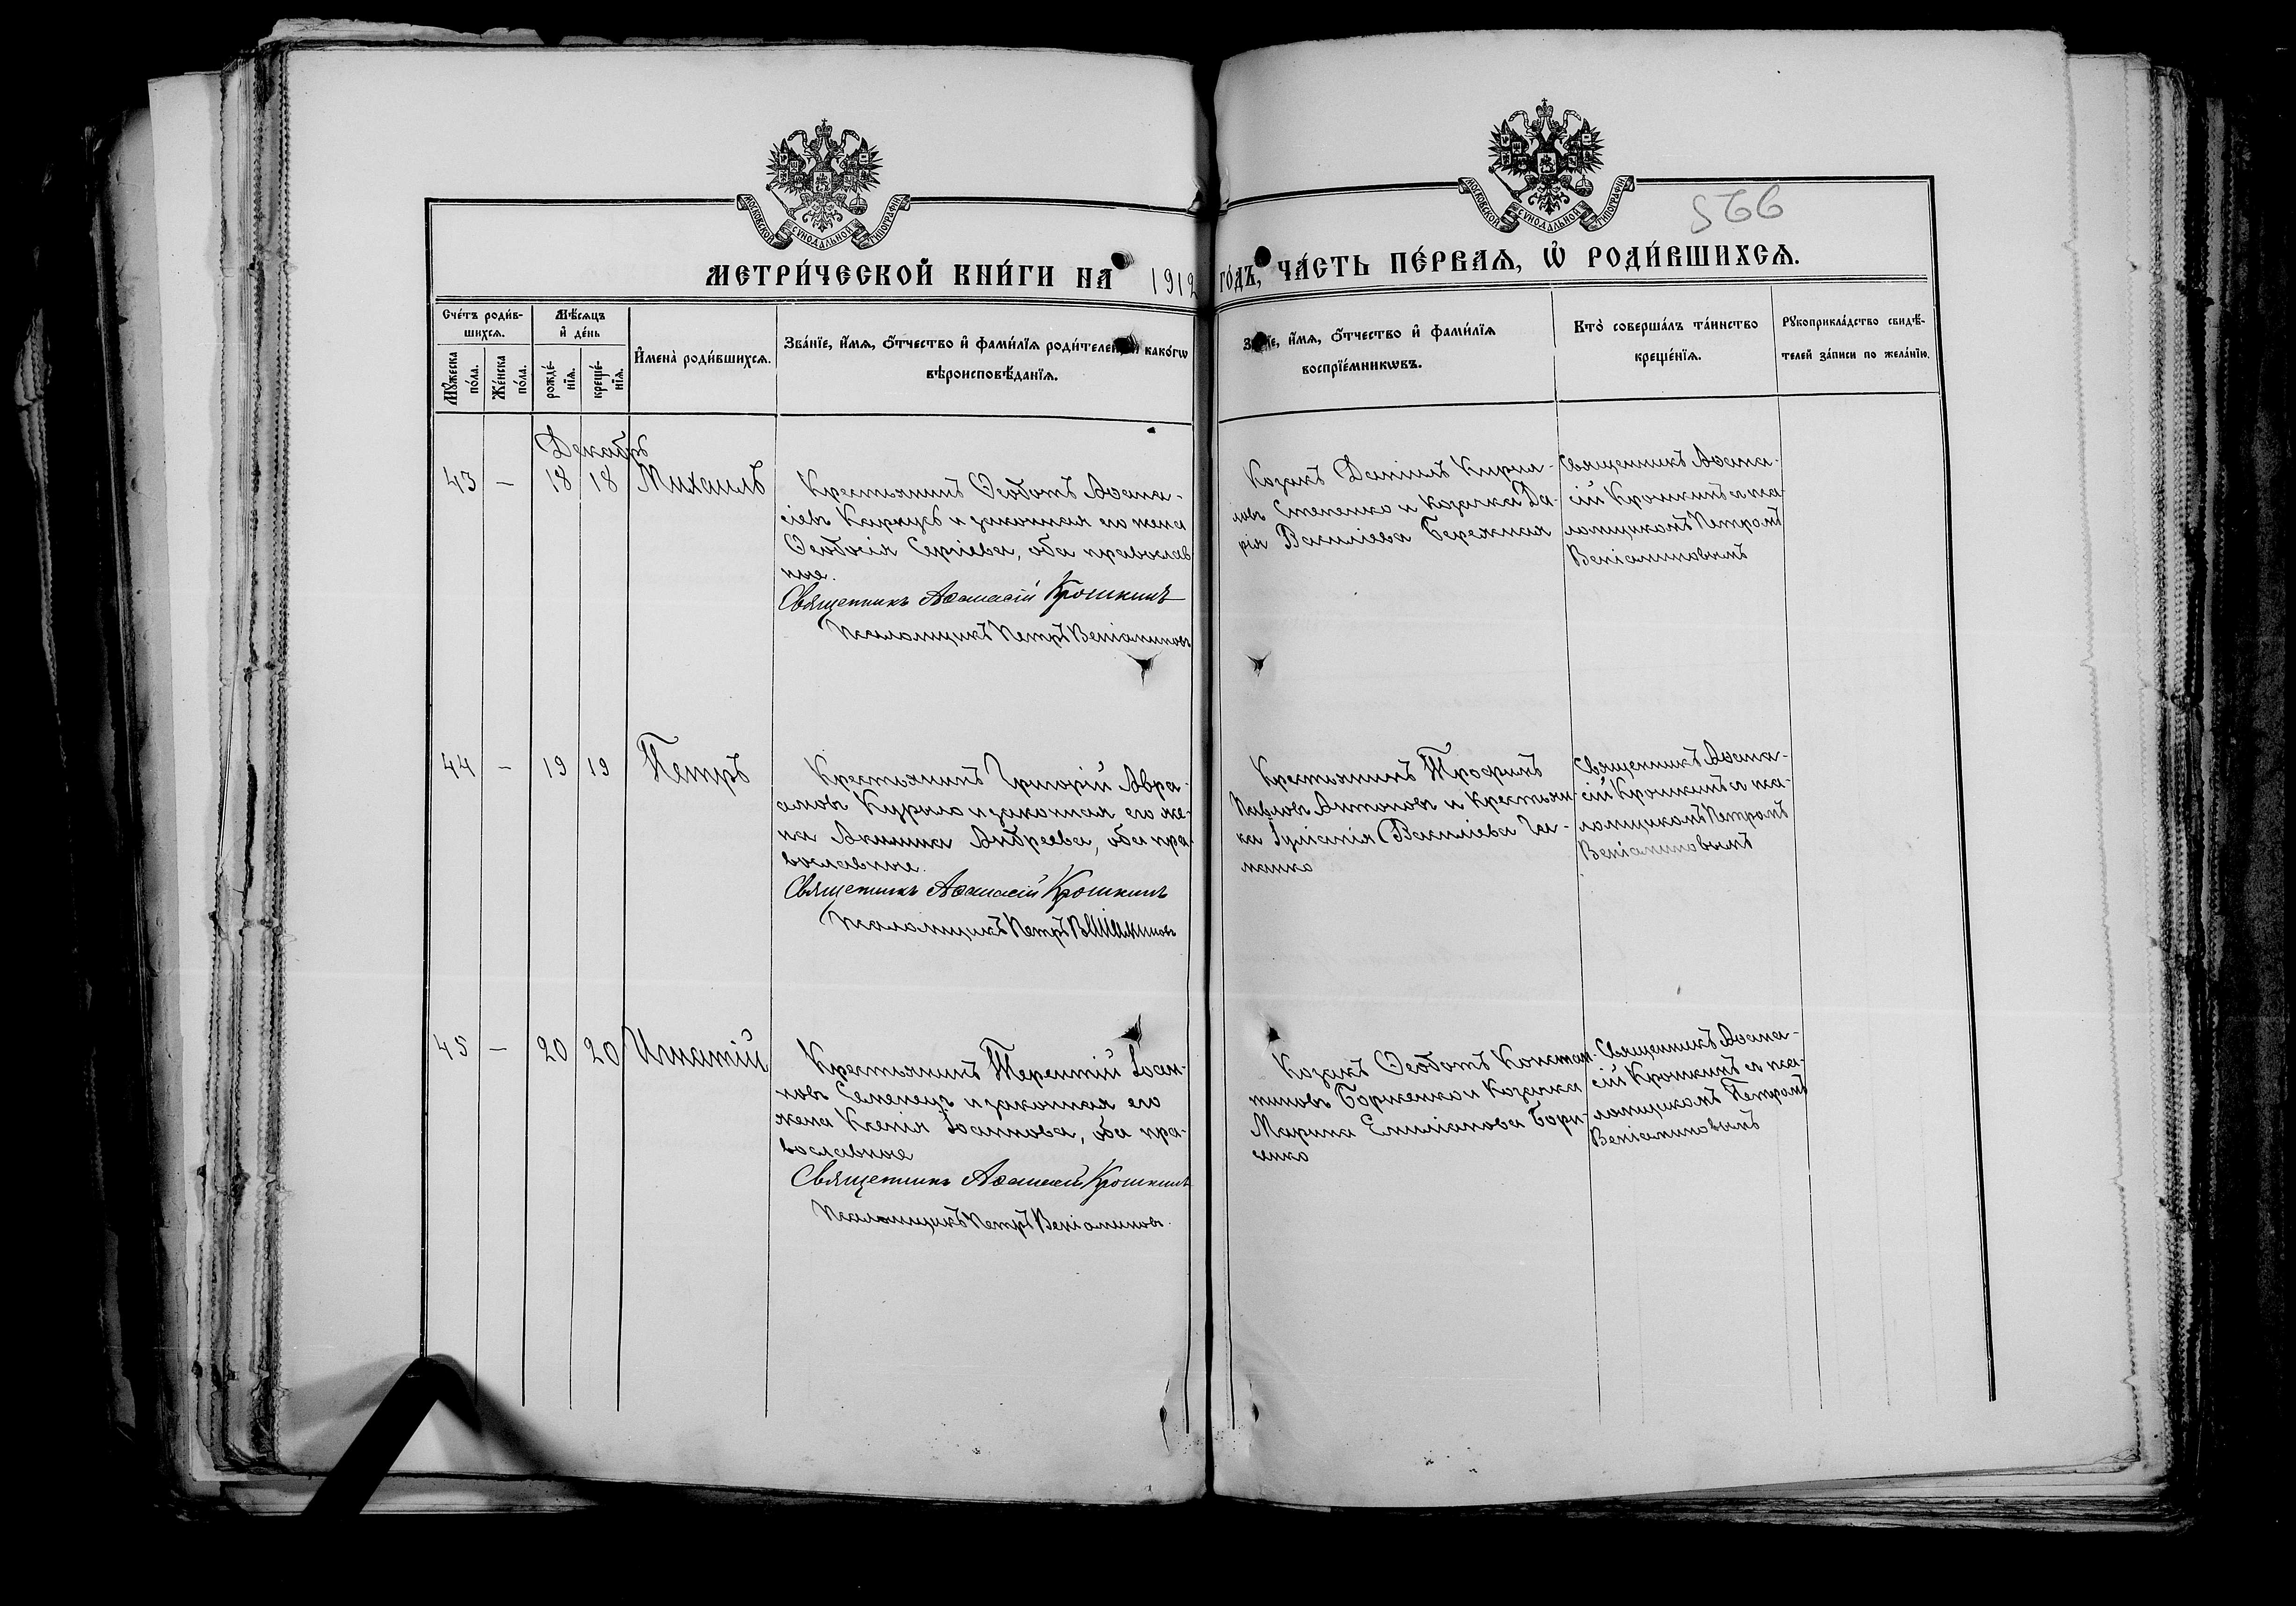 МОСКОВСКОЙ СѴНОДАЛЬНОЙ ТИПОГРАФІИ
МОСКОВСКОЙ СѴНОДАЛЬНОЙ ТИПОГРАФІИ
566
МЕТРИ́ЧЕСКОЙ КНИ́ГИ НА 1912 ГО́ДЪ, ЧА́СТЬ ПЕ́РВАѦ, Ѡ҆ РОДИ́ВШИХСѦ.
Сче́тъ роди́в-
шихсѧ.
Мꙋ́жеска
по́ла.
Же́нска
по́ла.
Мѣ́сѧцъ
и҆ де́нь
рожде́-
нїѧ.
креще́-
нїѧ.
И҆мена̀ роди́вшихсѧ.
Зва́нїе, и҆́мѧ, ѻ҆́тчество и҆ фами́лїѧ роди́телей, и҆ како́гѡ
вѣроисповѣ́данїѧ.
и҆́мѧ, ѻ҆́тчество и҆ фами́лїѧ
воспрїе́мникѡвъ.
Кто̀ соверша́лъ та́инство
креще́нїѧ.
Рꙋкоприкла́дство свидѣ́-
телей за́писи по жела́нїю.
Декабрь
43 — 18 18 Михаилъ
Крестьянинъ Ѳеодотъ Аѳана-
сіевъ Карпусь и законная его жена
Ѳеодосія Сергіева, оба православ
ные.
Священникъ Аѳанасій Крошкинъ
Псаломщикъ Петръ Веніаминовъ
Козакъ Даніилъ Кирил-
ловъ Степенко и козачка Да-
рія Василіева Бережная
Священникъ Аѳана-
сій Крошкинъ съ пса-
ломщикомъ Петромъ
Веніаминовымъ
44 — 19 19 Петръ
Крестьянинъ Григорій Авра-
амовъ Курило и законная его же-
на Акилина Андреева, оба пра-
вославные.
Священникъ Аѳанасій Крошкинъ
Псаломщикъ Петръ Веніаминовъ
Крестьянинъ Трофимъ
Павловъ Антоновъ и крестьян-
ка Іуліанія Василіева Га-
манко
Священникъ Аѳана-
сій Крошкинъ съ пса-
ломщикомъ Петромъ
Веніаминовымъ
45 — 20 20 Игнатій
Крестьянинъ Терентій Іоан-
новъ Семенецъ и законная его
жена Ксенія Іоаннова, оба пра-
вославные
Священникъ Аѳанасій Крошкинъ
Псаломщикъ Петръ Веніаминовъ.
Козакъ Ѳеодотъ Констан-
тиновъ Борженко и козачка
Марина Емиліанова Бори-
сенко
Священникъ Аѳана-
сій Крошкинъ съ пса-
ломщикомъ Петромъ
Веніаминовымъ